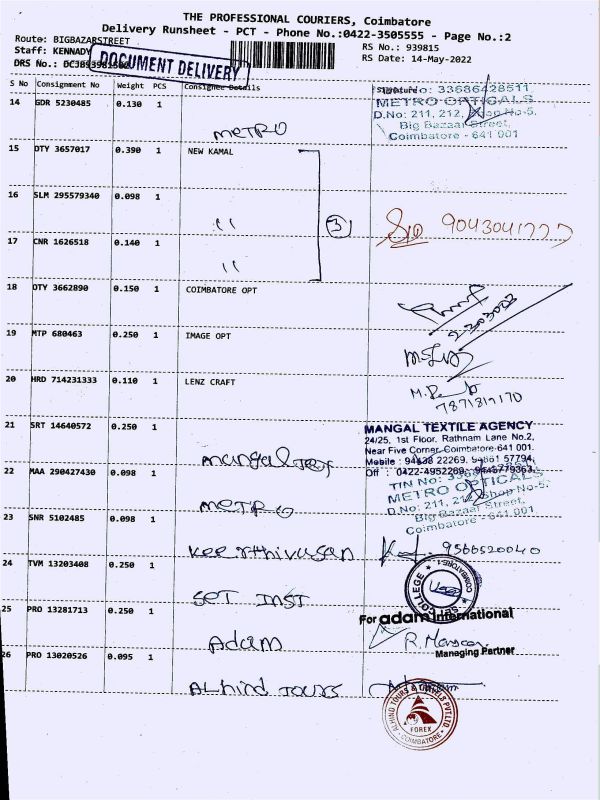 THE PROFESSIONAL COURIERS, Coimbatore
Delivery Runsheet - PCT - Phone No.:0422-3505555 - Page No.:2
Route: BIGBAZARSTREET
RS No.: 939815
Staff: KENNADY
RS Date: 14-May-2022
DRS No.:
DOCUMENT DELIVERY
S No Consignment No Weight PCS Consignee Details Signature
14 GDR 5230485 0.130 1 METRO
TIN No: 33686428511
METRO OPTICALS
D.No: 211, 212, Shop No-5,
Big Bazaar Street,
Coimbatore - 641 001
15 DTY 3657017 0.390 1 NEW KAMAL
16 SLM 295579340 0.098 1 "
3
9043041777
17 CNR 1626518 0.140 1 "
18 DTY 3662890 0.150 1 COIMBATORE OPT
19 MTP 680463 0.250 1 IMAGE OPT
20 HRD 714231333 0.110 1 LENZ CRAFT
7871819170
21 SRT 14640572 0.250 1 mangal
MANGAL TEXTILE AGENCY
24/25, 1st Floor, Rathnam Lane No.2,
Near Five Corner, Coimbatore-641 001.
Mobile : 94438 22269,
Off : 0422-4952269,
22 MAA 290427430 0.098 1 METRO
TIN No:
METRO OPTICALS
D.No: 211, 212, Shop No-5,
Big Bazaar Street,
Coimbatore - 641 001
23 SNR 5102485 0.098 1 Keerthivasan
9566520040
24 TVM 13203408 0.250 1 SET INST
COLLEGE
COIMBATORE-1
25 PRO 13281713 0.250 1 Adam
For adam International
Managing Partner
26 PRO 13020526 0.095 1 ALhind Tours
ALHIND TOURS & TRAVELS PVT LTD
FOREX
COIMBATORE